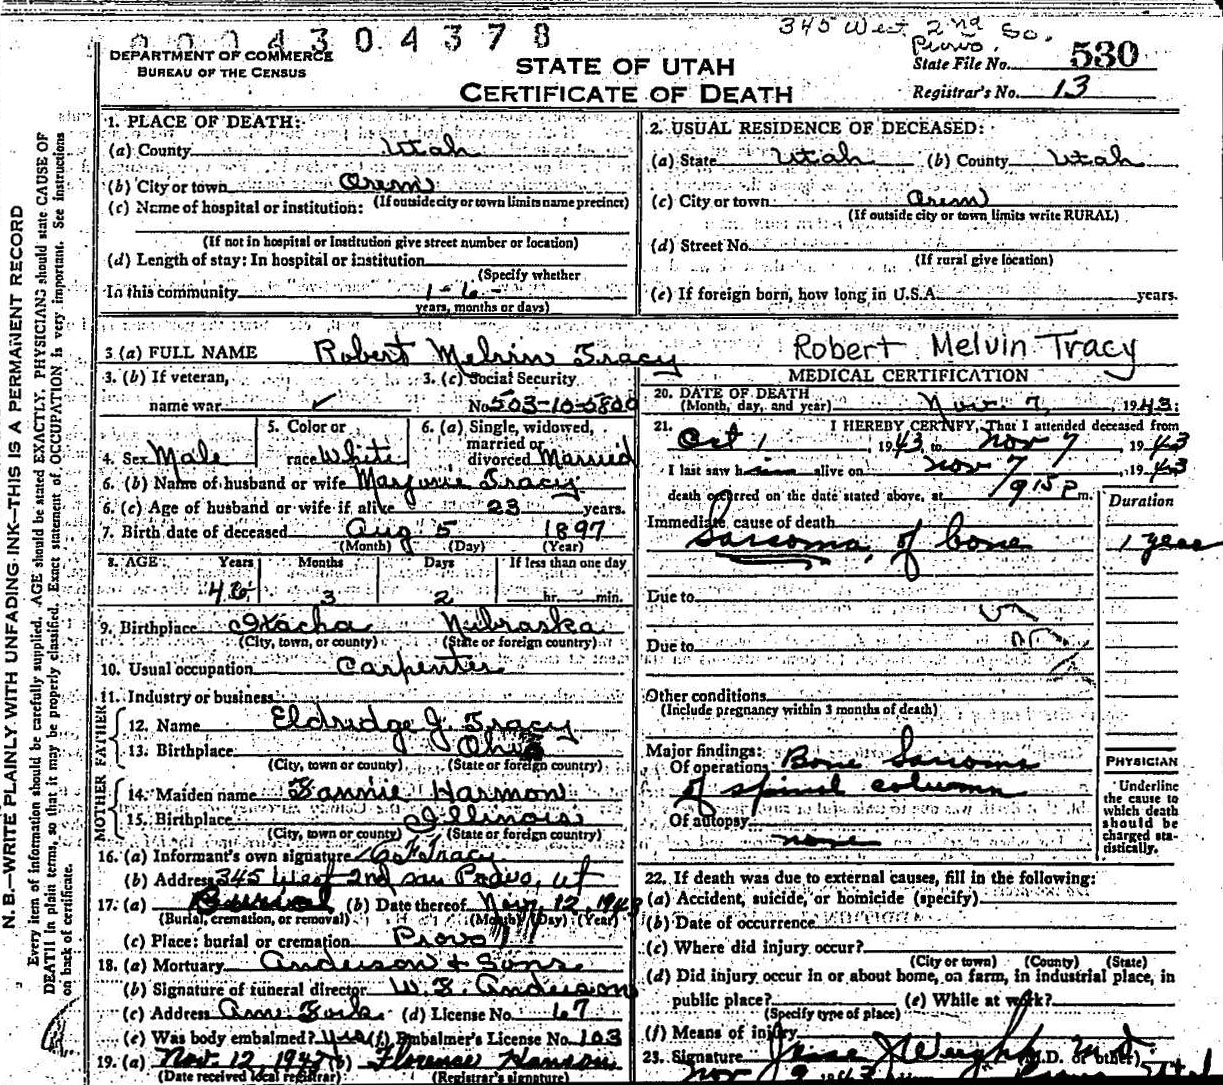 0004304378
345 West 2nd So.
Provo.
DEPARTMENT OF COMMERCE
BUREAU OF THE CENSUS
STATE OF UTAH
CERTIFICATE OF DEATH
State File No. 530
Registrar's No. 13
N. B.—WRITE PLAINLY WITH UNFADING INK—THIS IS A PERMANENT RECORD
Every item of information should be carefully supplied. AGE should be stated EXACTLY. PHYSICIANS should state CAUSE OF
DEATH in plain terms, so that it may be properly classified. Exact statement of OCCUPATION is very important. See instructions
on back of certificate.
1. PLACE OF DEATH:
(a) County Utah
(b) City or town Orem
(If outside city or town limits name precinct)
(c) Name of hospital or institution:
(If not in hospital or Institution give street number or location)
(d) Length of stay: In hospital or institution
(Specify whether
In this community 1-6-
years, months or days)
2. USUAL RESIDENCE OF DECEASED:
(a) State Utah (b) County Utah
(c) City or town Orem
(If outside city or town limits write RURAL)
(d) Street No.
(If rural give location)
(e) If foreign born, how long in U.S.A. years.
3. (a) FULL NAME Robert Melvin Tracy Robert Melvin Tracy
3. (b) If veteran,
name war
3. (c) Social Security
No. 503-10-5800
4. Sex Male
5. Color or
race White
6. (a) Single, widowed,
married or
divorced Married
6. (b) Name of husband or wife Marjorie Tracy
6. (c) Age of husband or wife if alive 23 years.
7. Birth date of deceased Aug 5 1897
(Month) (Day) (Year)
8. AGE Years Months Days If less than one day
46 3 2 hr. min.
9. Birthplace Nebraska
(City, town, or county) (State or foreign country)
10. Usual occupation Carpenter
11. Industry or business
FATHER
12. Name Eldridge J. Tracy
13. Birthplace Ohio
(City, town or county) (State or foreign country)
MOTHER
14. Maiden name Fannie Harmon
15. Birthplace Illinois
(City, town or county) (State or foreign country)
16. (a) Informant's own signature Tracy
(b) Address 345 West 2nd Provo, Ut
17. (a) Burial (b) Date thereof Nov. 12 1943
(Burial, cremation, or removal) (Month) (Day) (Year)
(c) Place: burial or cremation Provo
18. (a) Mortuary Anderson & Sons
(b) Signature of funeral director Anderson
(c) Address Am. Fork (d) License No. 67
(e) Was body embalmed? yes (f) Embalmer's License No. 103
19. (a) Nov. 12, 1943 (b) Florence Hanson
(Date received local registrar) (Registrar's signature)
MEDICAL CERTIFICATION
20. DATE OF DEATH
(Month, day, and year) Nov. 7, 1943
21. I HEREBY CERTIFY, That I attended deceased from
Oct 1, 1943, to Nov 7, 1943
I last saw him alive on Nov 7, 1943
death occurred on the date stated above, at 915 P m.
Duration
Immediate cause of death
Sarcoma, of bone 1 year
Due to
Due to
Other conditions
(Include pregnancy within 3 months of death)
Major findings:
Of operations Bone Sarcoma
of spinal column
Of autopsy
none
PHYSICIAN
Underline
the cause to
which death
should be
charged sta-
tistically.
22. If death was due to external causes, fill in the following:
(a) Accident, suicide, or homicide (specify)
(b) Date of occurrence
(c) Where did injury occur?
(City or town) (County) (State)
(d) Did injury occur in or about home, on farm, in industrial place, in
public place? (e) While at work?
(Specify type of place)
(f) Means of injury
23. Signature Jesse J Weight M.D. or other)
Nov 9 1943